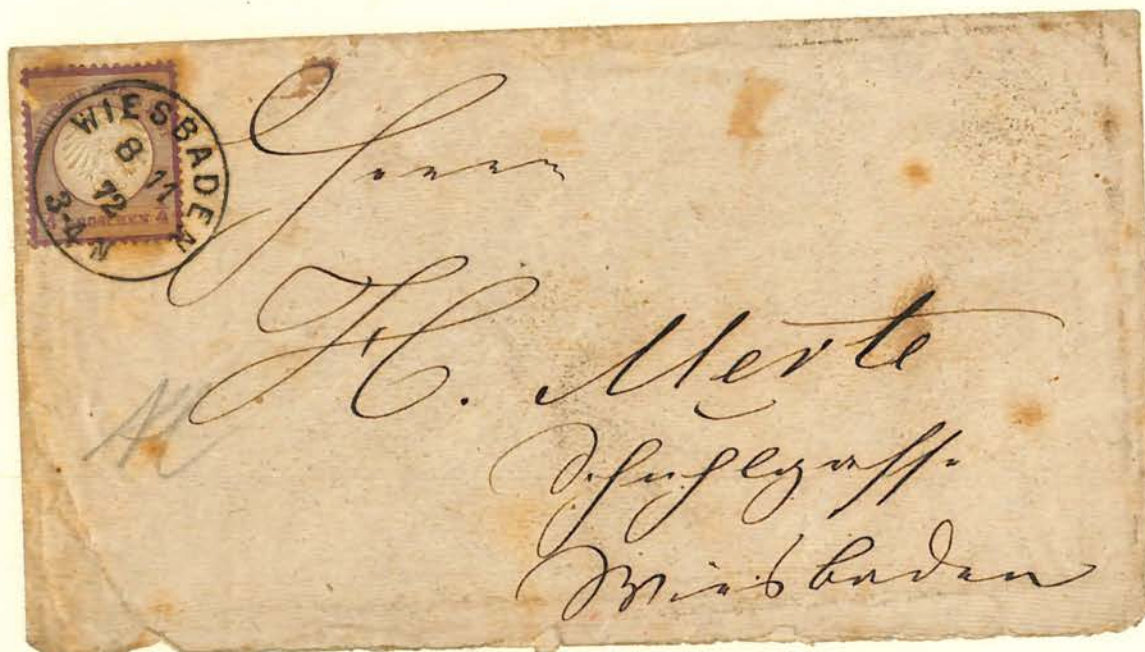 WIESBADEN
8 11
72
3-4 N
GROSCHEN
Herrn
H. Merte
Schuhlgasse
Wiesbaden